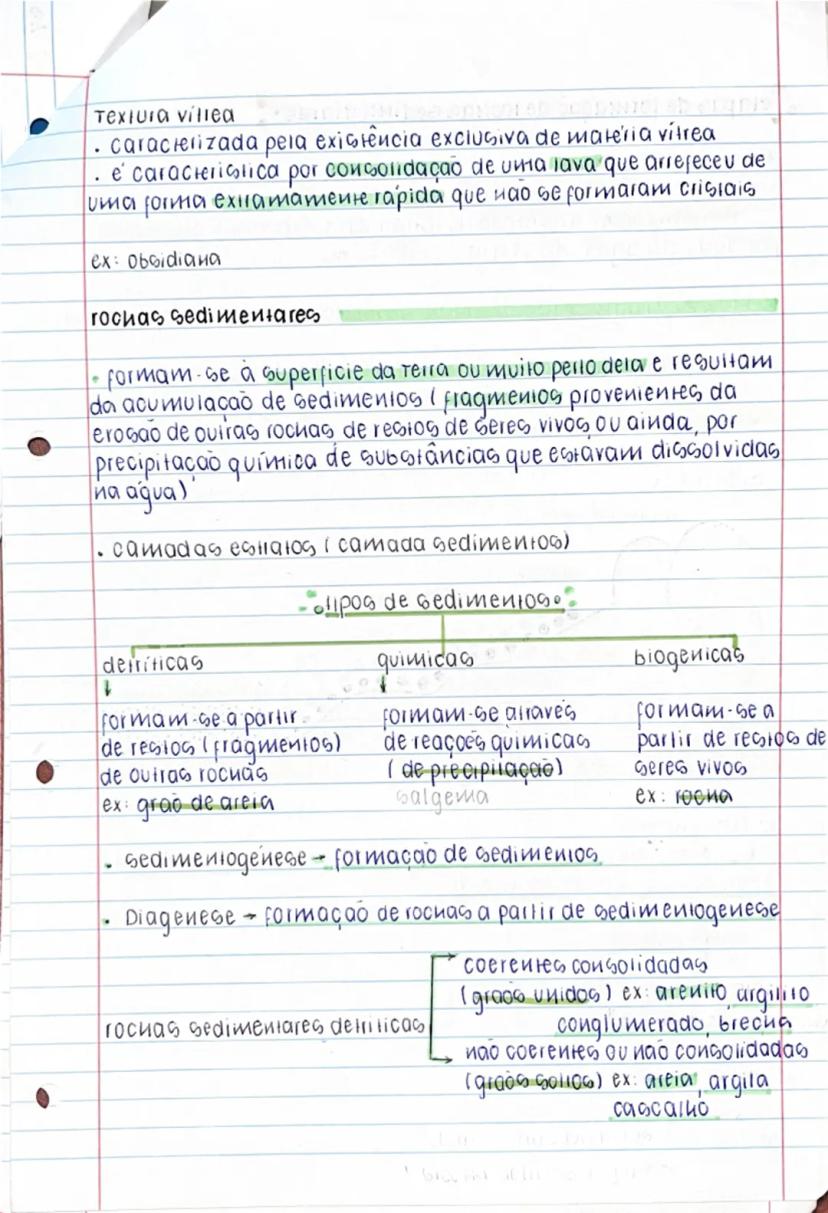 Textura vítrea
. caracterizada pela existência exclusiva de matéria vítrea
. é característica por consolidação de uma lava que arrefeceu de
uma forma extramamente rápida que não se formaram cristais
ex: obsidiana
rochas sedimentares
• formam-se à superfície da Terra ou muito perto dela e resultam
da acumulação de sedimentos ( fragmentos provenientes da
erosão de outras rochas de restos de seres vivos ou ainda, por
precipitação química de substâncias que estavam dissolvidas
na água)
. camadas estratos ( camada sedimentos)
tipos de sedimentos
detríticas químicas biogenicas
formam-se a partir formam-se através formam-se a
de restos (fragmentos) de reações químicas partir de restos de
de outras rochas ( de precipitação) seres vivos
ex: grão de areia salgema ex: rocha
. sedimentogénese → formação de sedimentos
. Diagenese → formação de rochas a partir de sedimentogenese
coerentes consolidadas
(graõs unidos) ex: arenito, argilito
rochas sedimentares detríticas conglumerado, brecha
não coerentes ou não consolidadas
(graõs soltos) ex: areia, argila
cascalho